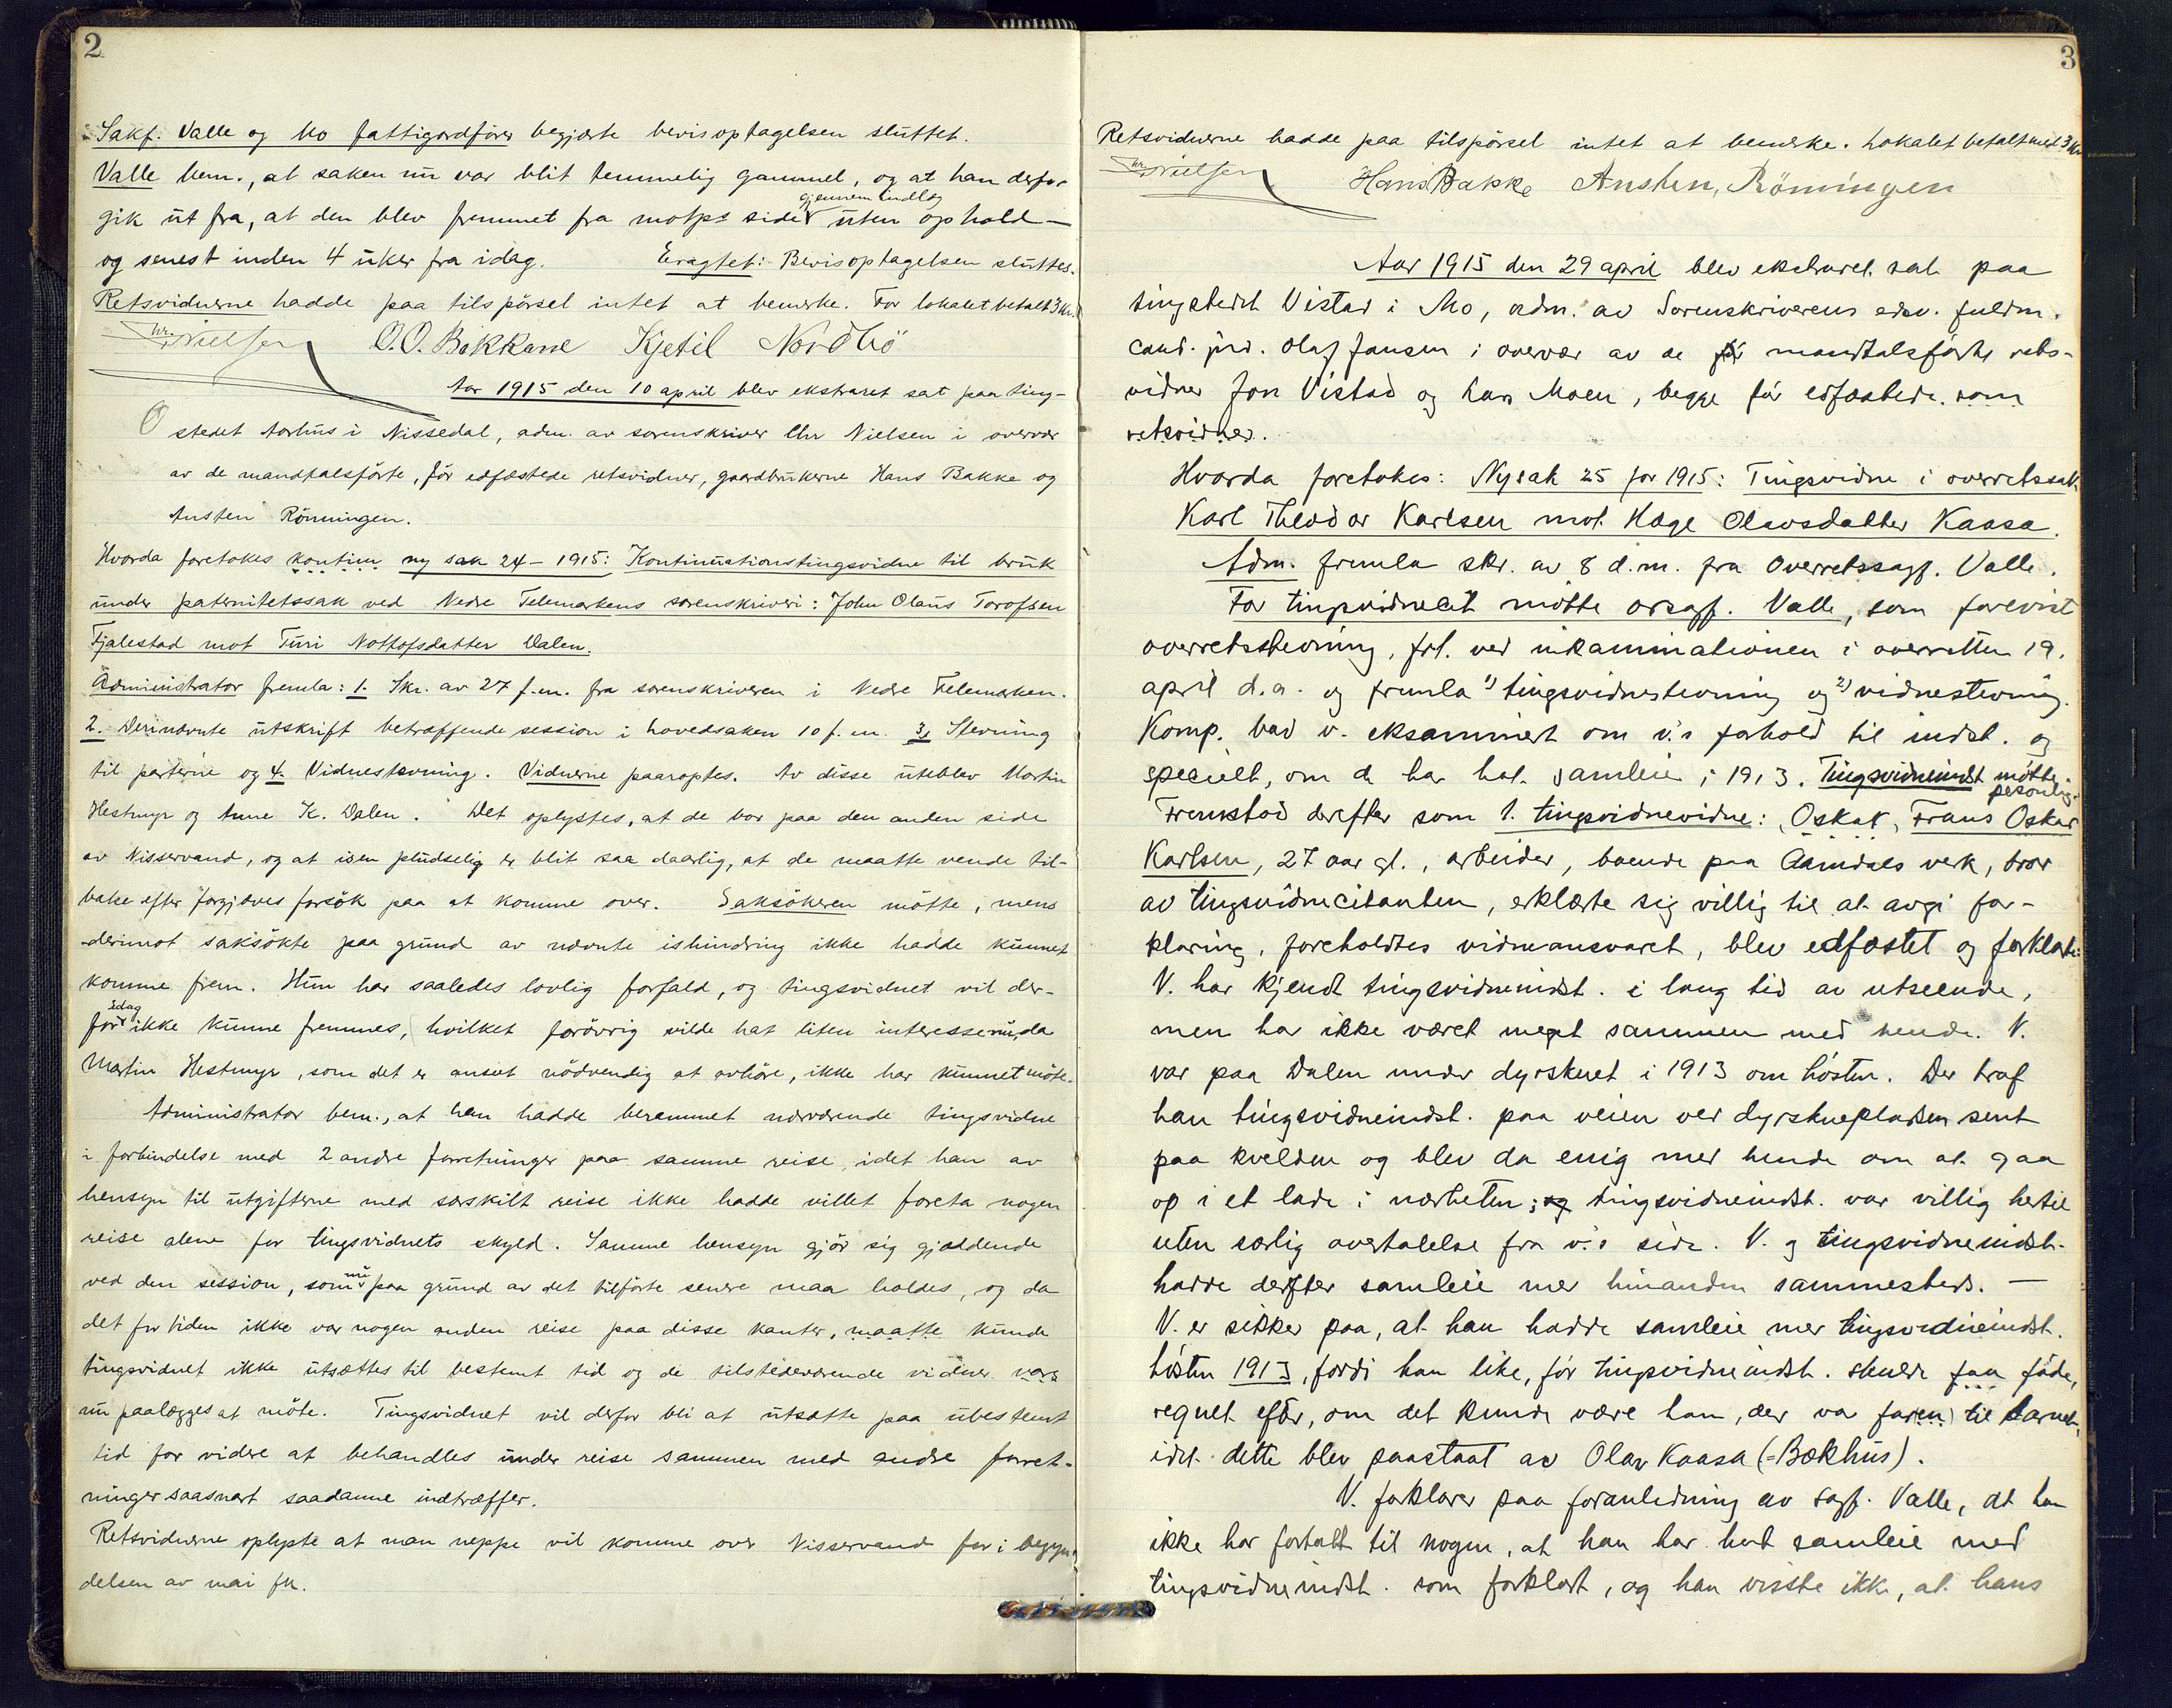 2
Sakf. Valle og Mo fattigordfører begjærte bevisoptagelsen sluttet.
Valle bem., at saken nu var blit temmelig gammel, og at han derfor
gjennem indlæg
gik ut fra, at den blev fremmet fra motps side uten ophold –
og senest inden 4 uker fra idag. Eragtet: Bevisoptagelsen sluttes.
Retsvidnerne hadde paa tilspörsel intet at bemerke. For lokalet betalt 3 kr.
Chr. Nielsen O.O. Bakkane Kjetil Nordbö
Aar 1915 den 10 april blev ekstraret sat paa ting-
stedet Aarhus i Nissedal, adm. av sorenskriver Chr Nielsen i overvær
av de mandtalsförte, för edfæstede retsvidner, gaardbrukerne Hans Bakke og
Austen Rönningen.
Hvorda foretokes kontin ny sak 24 – 1915: Kontinuationstingsvidne til bruk
under paternitetssak ved Nedre Telemarkens sorenskriveri: John Olaus Torofsen
Fjalestad mot Turi Nottofsdatter Dalen.
Administrator fremla: 1. Skr. av 27 f.m. fra sorenskriveren i Nedre Telemarken.
2. Derinævnte utskrift betræffende session i hovedsaken 10 f.m. 3, Stevning
til parterne og 4. Vidnestævning. Vidnerne paaroptes. Av disse uteblev Martin
Hestmyr og Anne K. Dalen. Det oplystes, at de bor paa den anden side
av Nisservand, og at isen pludselig er blit saa daarlig, at de maatte vende til-
bake efter forgjæves forsök paa at komme over. Saksökeren mötte, mens
derimot saksökte paa grund av nævnte ishindring ikke hadde kunnet
komme frem. Hun har saaledes lovlig forfald, og tingsvidnet vil der-
idag
for ikke kunne fremmes, hvilket forövrig vilde hat liten interesse nu, da
Martin Hestmyr, som det er anset nödvendig at avhöre, ikke har kunnet möte.
Administrator bem., at han hadde berammet nærværende tingsvidne
i forbindelse med 2 andre forretninger paa samme reise, idet han av
hensyn til utgifterne med særskilt reise ikke hadde villet foreta nogen
reise alene for tingsvidnets skyld. Samme hensyn gjör sig gjældende
nu
ved den session, som paa grund av det tilförte senere maa holdes, og da
det for tiden ikke var nogen anden reise paa disse kanter, maatte kunde
tingsvidnet ikke utsættes til bestemt tid og de tilstedeværende vidner være
nu paalægges at möte. Tingsvidnet vil derfor bli at utsætte paa ubestemt
tid for videre at behandles under reise sammen med andre forret-
ninger saasnart saadanne indtræffer.
Retsvidnerne oplyste at man neppe vil komme over Nisservand för i begyn-
delsen av mai fk.
3
Retsvidnerne hadde paa tilspörsel intet at bemerke. Lokalet betalt med 3 kr
Chr. Nielsen Hans Bakke Austen, Rönningen
Aar 1915 den 29 april blev ekstraret sat paa
tingstedet Vistad i Mo, adm. av Sorenskriverens edsv. fuldm.
cand. jur. Olaf Jansen i overvær av de för mandtalsførte rets-
vidner Jon Vistad og Lars Moen, begge før edfæstede som
retsvidner.
Hvorda foretokes: Ny sak 25 for 1915: Tingsvidne i overretssak
Karl Theodor Karlsen mot Hæge Olavsdatter Kaasa.
Adm. fremla skr. av 8 d.m. fra Overretssagf. Valle.
For tingsvidnecit møtte orsagf. Valle, som foreviste
overretsstevning, frl. ved inkaminationen i overretten 19.
april d.a. og fremla 1) tingsvidnestevning og 2) vidnestevning.
Komp. bad v. eksaminert om v.s forhold til indst. og
specielt, om de har hat samleie i 1913. Tingsvidneindst møtte
personlig.
Fremstod derefter som 1. tingsvidnevidne: Oskar, Frans Oskar
Karlsen, 27 aar gl., arbeider, boende paa Aamdals verk, bror
av tingsvidnecitanten, erklærte sig villig til at avgi for-
klaring, foreholdtes vidneansvaret, blev edfæstet og forklarte:
V. har kjendt tingsvidneindst. i lang tid av utseende,
men har ikke været meget sammen med hende. V.
var paa Dalen under dyrskuet i 1913 om høsten. Der traf
han tingsvidneindst. paa veien ved dyrskuepladsen sent
paa kvelden og blev da enig med hende om at gaa
op i et lade i nærheten; og tingsvidneindst. var villig hertil
uten særlig overtalelse fra v.s side. V. og tingsvidneindst.
hadde derefter samleie med hinanden sammesteds. –
V. er sikker paa, at han hadde samleie med tingsvidneindst.
høsten 1913, fordi han like, før tingsvidneindst. skulde faa føde,
regnet efter, om det kunde være han, der var faren til barnet,
idet dette blev paastaat av Olav Kaasa (=Bækhus).
V. forklarer paa foranledning av sagf. Valle, at han
ikke har fortalt til nogen, at han har hat samleie med
tingsvidneindst. som forklart, og han visste ikke, at hans